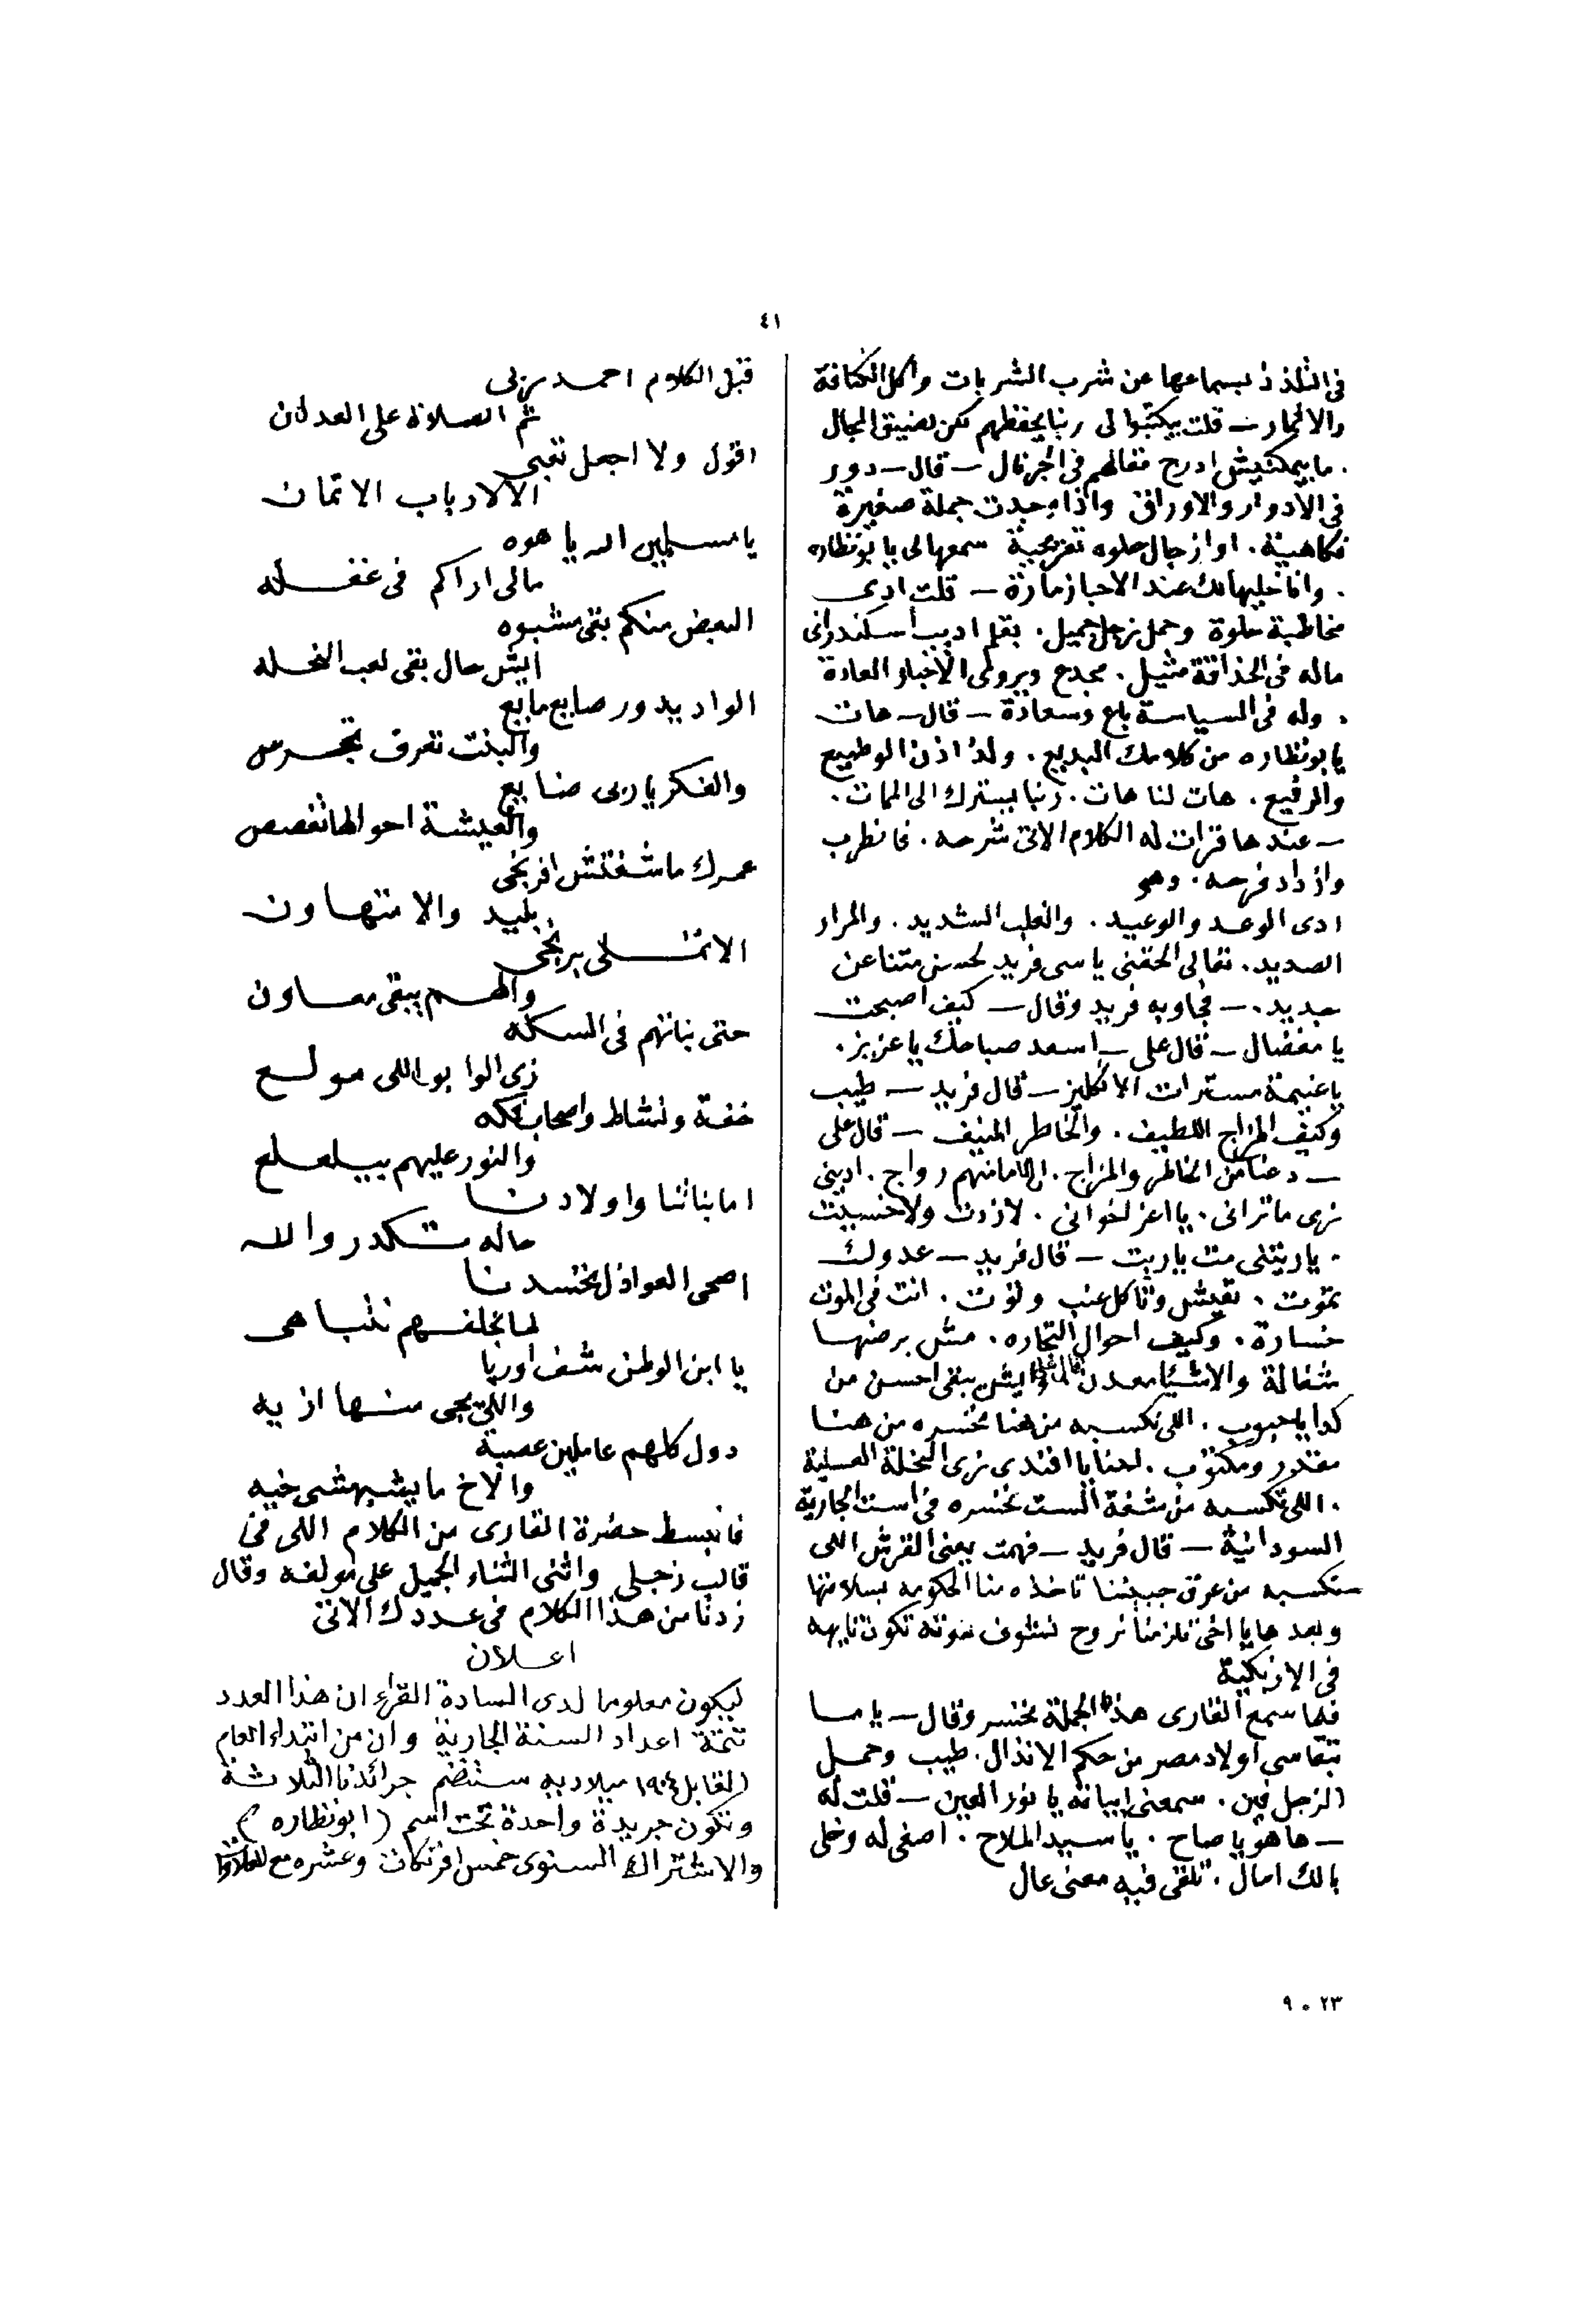 ٤١
فى التلذذ بسماعها عن شرب الشربات واكل الكنافة
والاثمار — قلت بيكتبوا لى ربنا يحفظهم لكن لضيق المجال
. ما يمكنيش ادرج مقالهم فى الجرنال — قال — دور
فى الادوار والاوراق واذا وجدت جملة صغيرة
فكاهية . او ازجال حلوه تفريحية سمعها لى يا بونظاره
. وانا خليها لك عند الاحبا زمارة — قلت ادى
مخاطبة حلوة وحمل زجل جميل . بقلم اديب اسكندرانى
ماله فى الحذاقة مثيل . مجدع ويروى الاخبار المعادة
. وله فى السياسة باع وسعادة — قال — هات
يا بونظاره من كلامك البديع . ولذ اذن الوطيع
والرفيع . هات لنا هات . ربنا يسترك الى الممات .
— عندها قرات له الكلام الاتى شرحه . فانطرب
وازداد فرحه . وهو
ادى الوعد والوعيد . والغلب الشديد . والمرار
الصديد . تعالى الحقنى يا سى فريد لحسن متنا عن
جديد . — فجاوبه فريد وقال — كيف اصبحت
يا مفضال — قال على — اسعد صباحك يا عزيز .
يا غنيمة مسترات الانكليز — قال فريد — طيب
وكيف المزاج اللطيف . والخاطر المنيف — قال على
— دعنا من الخاطر والمزاج . الى ما منهم رواج . ادينى
زى ما ترانى . يا اعز اخوانى . لا زدت ولا خسيت
. ياريتنى مت ياريت — قال فريد — عدوك
يموت . تعيش وتاكل عنب وتوت . انت فى الموت
خسارة . وكيف احوال التجاره . مش برضها
شغالة والاشيا معدن قال على وايش يبقى احسن من
كدا يا محبوب . اللى نكسبه من هنا نخسره من هنا
مقدر ومكتوب . احنا يا افندى زى النخلة العسلية
. اللى تكسبه من شفة الست تخسره فى است الجارية
السودانية — قال فريد — فهمت يعنى القرش اللى
نكسبه من عرق جبيننا تاخذه منا الحكومه بسلامتها
وبعد ها يا اخى تلزمنا نروح نشوف تكون تايهه
فى الازبكية
فلما سمع القارى هذه الجملة تحسر وقال — يا ما
تتقاسى اولاد مصر من حكم الانذال . طيب وحمل
الزجل فين . سمعنى ابياته يا نور العين — قلت له
— ها هو يا صاح . يا سيد الملاح . اصغى له وخلى
بالك امال . تلقى فيه معنى عال
قبل الكلام احمد ربى
ثم الصلاة على العدنان
اقول ولا اجعل تعبى
الا لارباب الاتمان
يا مسلمين الله يا هوه
مالى اراكم فى غفله
البعض منكم بقى مشبوه
ايش حال بقى لعب النحله
الواد يدور صايع مايع
والبنت تعرف تتمخرص
والفكر ياربى ضايع
والعيشة احوالها تغصص
عمرك ما شفتش افرنجى
بليد والا متهاون
الاتلى برنجى
والهم يبقى معاون
حتى بناتهم فى السكه
زى الوابور اللى مولع
خفة ونشاط واصحاب لكه
والنور عليهم بيلعلع
اما بناتنا واولادنا
حاله تكدر والله
اصحى العواذل تحسدنا
لما نخلفهم نتباهى
يا ابن الوطن شف اوربا
واللى يجى منها ازيه
دول كلهم عاملين عصبة
والاخ ما يشبهشى خيه
فانبسط حضرة القارى من الكلام اللى فى
قالب زجلى واثنى الثناء الجميل على مولفه وقال
زدنا من هذا الكلام فى عددك الاتى
اعلان
ليكون معلوما لدى السادة القراء ان هذا العدد
تتمة اعداد السنة الجارية وان من ابتداء العام
القابل ١٩٠٤ ميلاديه ستنضم جرائدنا الثلاثة
وتكون جريدة واحدة تحت اسم (ابونظاره)
والاشتراك السنوى خمس افرنكات وعشره مع العلاوات
٢٣ ٠ ٩